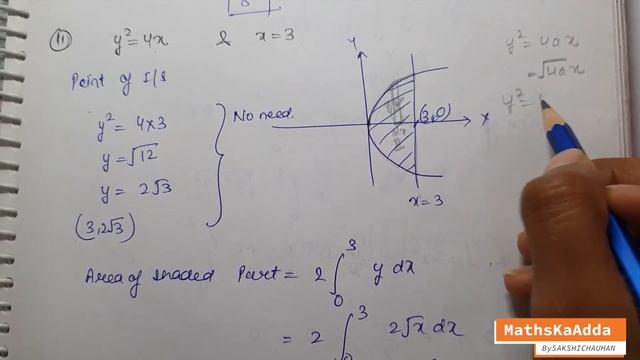 8
(11) y² = 4x & x = 3
Point of I/S
y² = 4×3
y = √12
y = 2√3
(3, 2√3)
No need
Y
(3,0)
X
x = 3
dx
y² = 4ax
= √4ax
y² =
Area of shaded Part = 2 ∫₀³ y dx
= 2 ∫₀³ 2√x dx
MathsKaAdda
By SAKSHI CHAUHAN